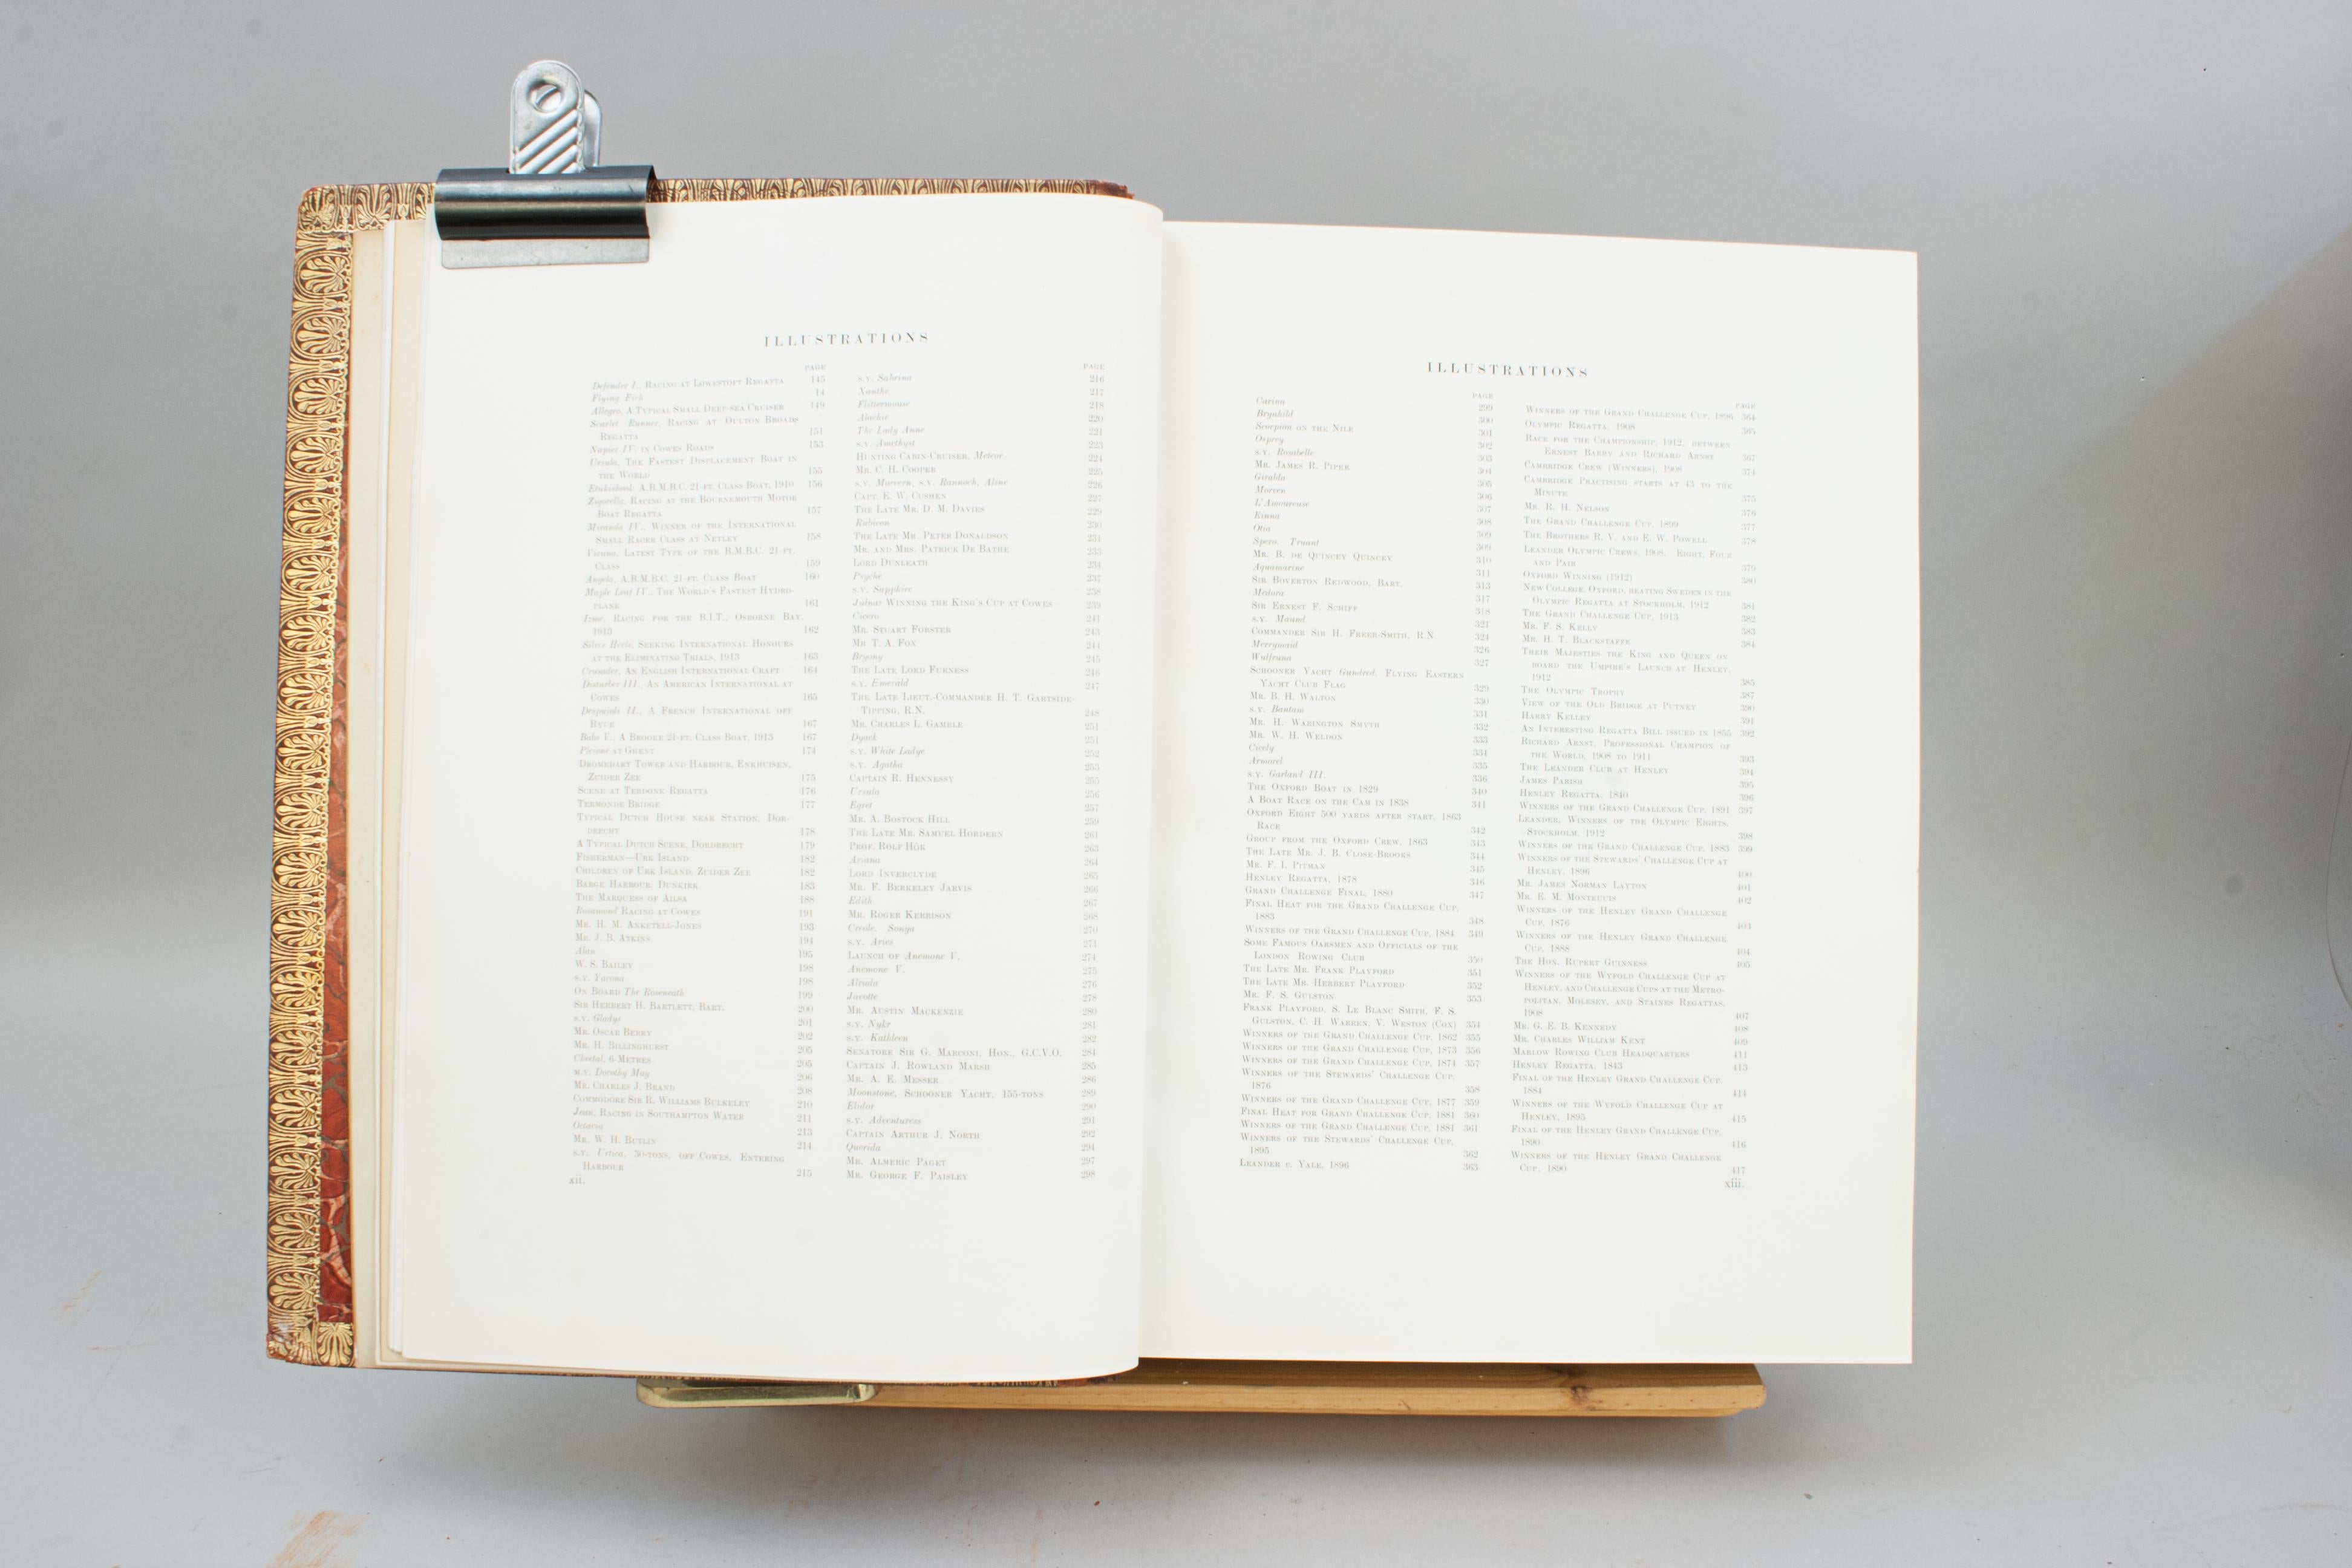 ILLUSTRATIONS
PAGE
Defender I., Racing at Lowestoft Regatta 145
Flying Fish 14
Allegro, A Typical Small Deep-sea Cruiser 149
Scarlet Runner, Racing at Oulton Broads
Regatta 151
Napier IV. in Cowes Roads 153
Ursula, The Fastest Displacement Boat in
the World 155
A.B.M.B.C. 21-ft. Class Boat, 1910 156
Racing at the Bournemouth Motor
Boat Regatta 157
Miranda IV., Winner of the International
Small Racer Class at Netley 158
Vienna, Latest Type of the B.M.B.C. 21-ft.
Class 159
Angela, A.B.M.B.C. 21-ft. Class Boat 160
Maple Leaf IV., The World's Fastest Hydro-
plane 161
Izme, Racing for the B.I.T., Osborne Bay,
1913 162
Silver Heels, Seeking International Honours
at the Eliminating Trials, 1913 163
Crusader, An English International Craft 164
Disturber III., An American International at
Cowes 165
Despujols II., A French International off
Ryde 167
Babe V., A Brooke 21-ft. Class Boat, 1913 167
at Ghent 174
Dromedary Tower and Harbour, Enkhuisen,
Zuider Zee 175
Scene at Terdonk Regatta 176
Termonde Bridge 177
Typical Dutch House near Station, Dor-
drecht 178
A Typical Dutch Scene, Dordrecht 179
Fisherman—Urk Island 182
Children of Urk Island, Zuider Zee 182
Barge Harbour, Dunkirk 183
The Marquess of Ailsa 188
Rosamond Racing at Cowes 191
Mr. H. M. Anketell-Jones 193
Mr. J. B. Atkins 194
Alan 195
W. S. Bailey 198
s.y. Vacuna 198
On Board The Roseneath 199
Sir Herbert H. Bartlett, Bart. 200
s.y. Gladys 201
Mr. Oscar Berry 202
Mr. H. Billinghurst 205
Cheetal, 6-Metres 205
m.y. Dorothy May 206
Mr. Charles J. Brand 208
Commodore Sir R. Williams Bulkeley 210
Jean, Racing in Southampton Water 211
Octavia 213
Mr. W. H. Butlin 214
s.y. Urtica, 30-tons, off Cowes, Entering
Harbour 215
xii.
PAGE
s.y. Sabrina 216
Xanthe 217
Flittermouse 218
220
The Lady Anne 221
s.y. Amethyst 223
Hunting Cabin-Cruiser, Meteor 224
Mr. C. H. Cooper 225
s.y. Morvern, s.y. Rannoch, Aline 226
Capt. E. W. Cushen 227
The Late Mr. D. M. Davies 229
Rubicon 230
The Late Mr. Peter Donaldson 231
Mr. and Mrs. Patrick De Bathe 233
Lord Dunleath 234
Psyche 237
s.y. Sapphire 238
Julnar Winning the King's Cup at Cowes 239
Cicero 241
Mr. Stuart Forster 243
Mr. T. A. Fox 244
Bryony 245
The Late Lord Furness 246
s.y. Emerald 247
The Late Lieut.-Commander H. T. Gartside-
Tipping, R.N. 248
Mr. Charles L. Gamble 251
Dyack 251
s.y. White Ladye 252
s.y. Agatha 253
Captain R. Hennessy 255
Ursula 256
Egret 257
Mr. A. Bostock Hill 259
The Late Mr. Samuel Hordern 261
Prof. Rolf Hök 263
Ariana 264
Lord Inverclyde 265
Mr. F. Berkeley Jarvis 266
Edith 267
Mr. Roger Kerrison 268
Creole. Sonya 270
s.y. Aries 271
Launch of Anemone V. 274
Anemone V. 275
Abrula 276
Javotte 278
Mr. Austin Mackenzie 280
s.y. Nykr 281
s.y. Kathleen 282
Senatore Sir G. Marconi, Hon., G.C.V.O. 284
Captain J. Rowland Marsh 285
Mr. A. E. Messer 286
Moonstone, Schooner Yacht, 155-tons 289
Elidor 290
s.y. Adventuress 291
Captain Arthur J. North 292
Querida 294
Mr. Almeric Paget 297
Mr. George F. Paisley 298
ILLUSTRATIONS
PAGE
Carina 299
Brynhild 300
Scorpion on the Nile 301
Osprey 302
s.y. Rosabelle 303
Mr. James R. Piper 304
Giralda 305
Moreen 306
L'Amoureuse 307
Einna 308
Otia 309
Spero. Truant 309
Mr. B. de Quincey Quincey 310
Aquamarine 311
Sir Boverton Redwood, Bart. 313
Medora 317
Sir Ernest F. Schiff 318
s.y. Maund 321
Commander Sir H. Freer-Smith, R.N. 324
Merrymaid 326
Wulfruna 327
Schooner Yacht Gundred, Flying Eastern
Yacht Club Flag 329
Mr. B. H. Walton 330
s.y. Bantam 331
Mr. H. Warington Smyth 332
Mr. W. H. Weldon 333
Cicely 334
Armorel 335
s.y. Garland III. 336
The Oxford Boat in 1829 340
A Boat Race on the Cam in 1838 341
Oxford Eight 500 yards after start, 1863
Race 342
Group from the Oxford Crew, 1863 343
The Late Mr. J. B. Close-Brooks 344
Mr. F. I. Pitman 345
Henley Regatta, 1878 346
Grand Challenge Final, 1880 347
Final Heat for the Grand Challenge Cup,
1883 348
Winners of the Grand Challenge Cup, 1884 349
Some Famous Oarsmen and Officials of the
London Rowing Club 350
The Late Mr. Frank Playford 351
The Late Mr. Herbert Playford 352
Mr. F. S. Gulston 353
Frank Playford, S. Le Blanc Smith, F. S.
Gulston, C. H. Warren, V. Weston (Cox) 354
Winners of the Grand Challenge Cup, 1862 355
Winners of the Grand Challenge Cup, 1873 356
Winners of the Grand Challenge Cup, 1874 357
Winners of the Stewards' Challenge Cup,
1876 358
Winners of the Grand Challenge Cup, 1877 359
Final Heat for Grand Challenge Cup, 1881 360
Winners of the Grand Challenge Cup, 1881 361
Winners of the Stewards' Challenge Cup,
1895 362
Leander v. Yale, 1896 363
PAGE
Winners of the Grand Challenge Cup, 1896 364
Olympic Regatta, 1908 365
Race for the Championship, 1912, between
Ernest Barry and Richard Arnst 367
Cambridge Crew (Winners), 1908 374
Cambridge Practising starts at 43 to the
Minute 375
Mr. R. H. Nelson 376
The Grand Challenge Cup, 1899 377
The Brothers R. V. and E. W. Powell 378
Leander Olympic Crews, 1908. Eight, Four
and Pair 379
Oxford Winning (1912) 380
New College, Oxford, beating Sweden in the
Olympic Regatta at Stockholm, 1912 381
The Grand Challenge Cup, 1913 382
Mr. F. S. Kelly 383
Mr. H. T. Blackstaffe 384
Their Majesties the King and Queen on
board the Umpire's Launch at Henley,
1912 385
The Olympic Trophy 387
View of the Old Bridge at Putney 390
Harry Kelley 391
An Interesting Regatta Bill issued in 1855 392
Richard Arnst, Professional Champion of
the World, 1908 to 1911 393
The Leander Club at Henley 394
James Parish 395
Henley Regatta, 1840 396
Winners of the Grand Challenge Cup, 1891 397
Leander, Winners of the Olympic Eights,
Stockholm, 1912 398
Winners of the Grand Challenge Cup, 1885 399
Winners of the Stewards' Challenge Cup at
Henley, 1896 400
Mr. James Norman Layton 401
Mr. E. M. Monteuuis 402
Winners of the Henley Grand Challenge
Cup, 1876 403
Winners of the Henley Grand Challenge
Cup, 1888 404
The Hon. Rupert Guinness 405
Winners of the Wyfold Challenge Cup at
Henley, and Challenge Cups at the Metro-
politan, Molesey, and Staines Regattas,
1908 407
Mr. G. E. B. Kennedy 408
Mr. Charles William Kent 409
Marlow Rowing Club Headquarters 411
Henley Regatta, 1843 413
Final of the Henley Grand Challenge Cup,
1884 414
Winners of the Wyfold Challenge Cup at
Henley, 1895 415
Final of the Henley Grand Challenge Cup,
1890 416
Winners of the Henley Grand Challenge
Cup, 1890 417
xiii.